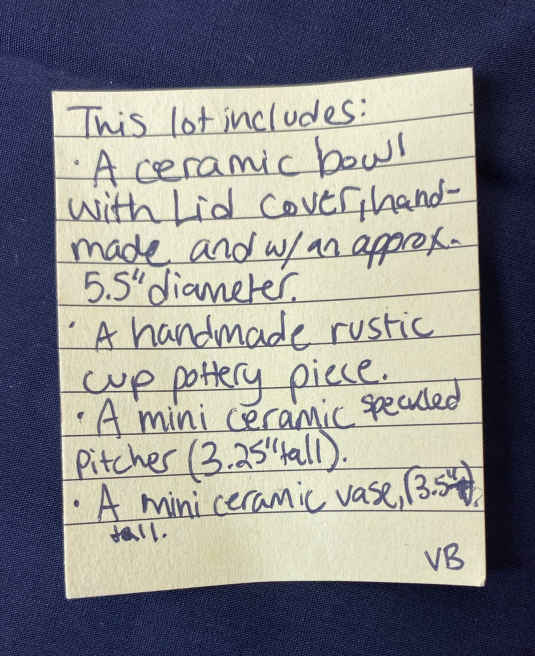 This lot includes:
· A ceramic bowl
with Lid cover, hand-
made and w/ an approx.
5.5" diameter.
· A handmade rustic
cup pottery piece.
· A mini ceramic speckled
pitcher (3.25" tall).
· A mini ceramic vase, (3.5")
tall.
VB